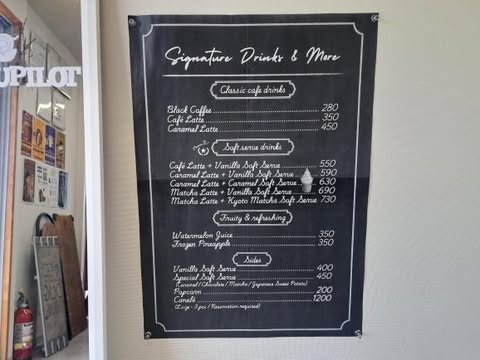 UPILOT
Signature Drinks & More
Classic cafe drinks
Black Coffee 280
Café Latte 350
Caramel Latte 450
Soft serve drinks
Café Latte + Vanilla Soft Serve 550
Caramel Latte + Vanilla Soft Serve 590
Caramel Latte + Caramel Soft Serve 630
Matcha Latte + Vanilla Soft Serve 690
Matcha Latte + Kyoto Matcha Soft Serve 730
Fruity & refreshing
Watermelon Juice 350
Frozen Pineapple 350
Sides
Vanilla Soft Serve 400
Special Soft Serve 450
(Caramel / Chocolate / Matcha / Japanese Sweet Potato)
Popcorn 200
Canelé 1200
(Large - 3 pcs / Reservation required)